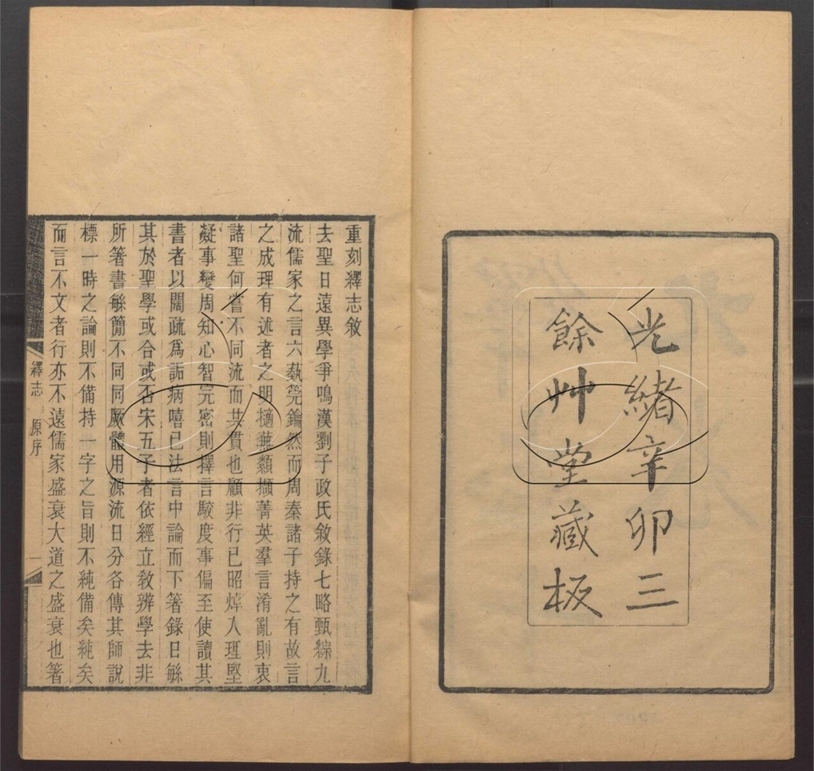 光緒辛卯三
餘艸堂藏板
重刻繹志敘
去聖日遠異學爭鳴漢劉子政氏敘錄七略甄綜九
流儒家之言六蓺筦鑰然而周秦諸子持之有故言
之成理有述者之明擿葉類擷菁英羣言淆亂則衷
諸聖何嘗不同流而共貫也顧非行已昭焯人理堅
凝事變周知心智完密則擇言駮度事偏至使讀其
書者以闊疏爲詬病嘻已法言中論而下著錄日緐
其於聖學或合或否宋五子者依經立敎辨學去非
所著書緐簡不同同厥體用源流日分各傳其師說
標一時之論則不備持一字之旨則不純備矣純矣
而言不文者行亦不遠儒家盛衰大道之盛衰也箸
繹志
原序
一